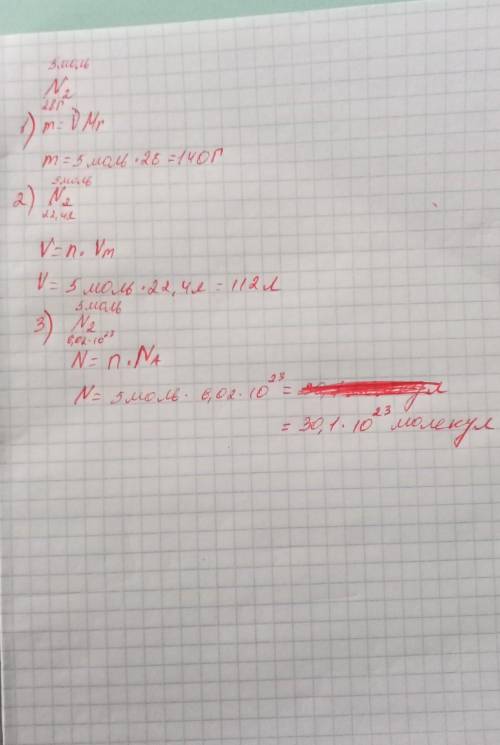 5 моль
N₂
28 г
1) m = ν Mr
m = 5 моль · 28 = 140 г
5 моль
2) N₂
22,4 л
V = n · Vm
V = 5 моль · 22,4 л = 112 л
5 моль
3) N₂
6,02 · 10²³
N = n · NA
N = 5 моль · 6,02 · 10²³ =
= 30,1 · 10²³ молекул